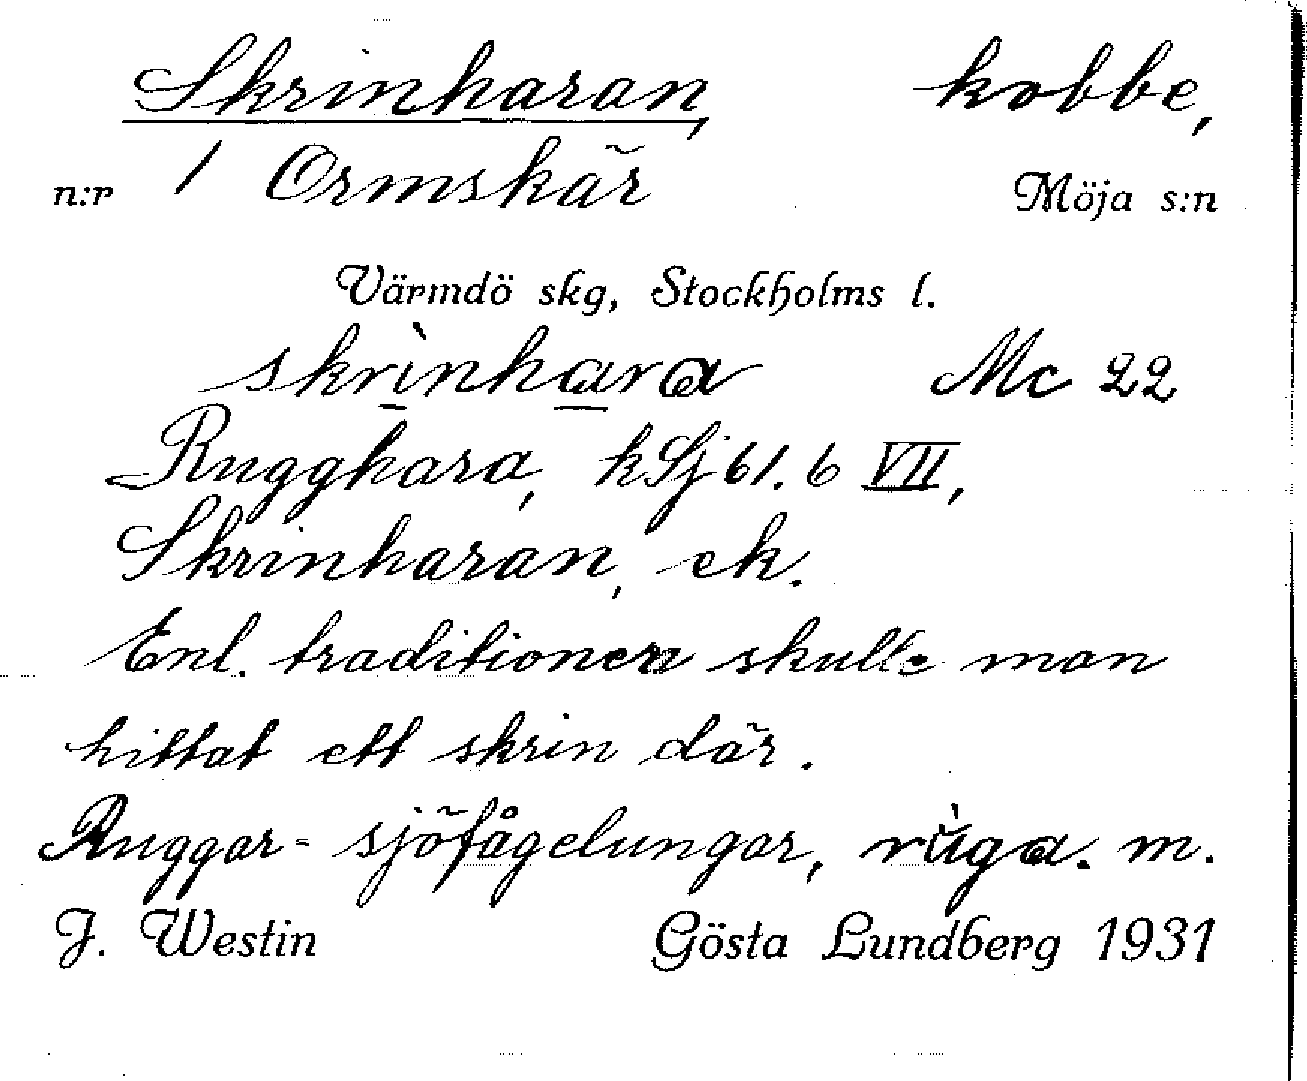 Skrinharan, kobbe,
n:r 1 Ormskär Möja s:n
Värmdö skg, Stockholms l.
skrìnhara Mc 22
Rugghara, kSj 61. 6 VII,
Skrinharan, ek.
Enl. traditionen skulle man
hittat ett skrin där.
Ruggar - sjöfågelungar, rùga. m.
J. Westin Gösta Lundberg 1931